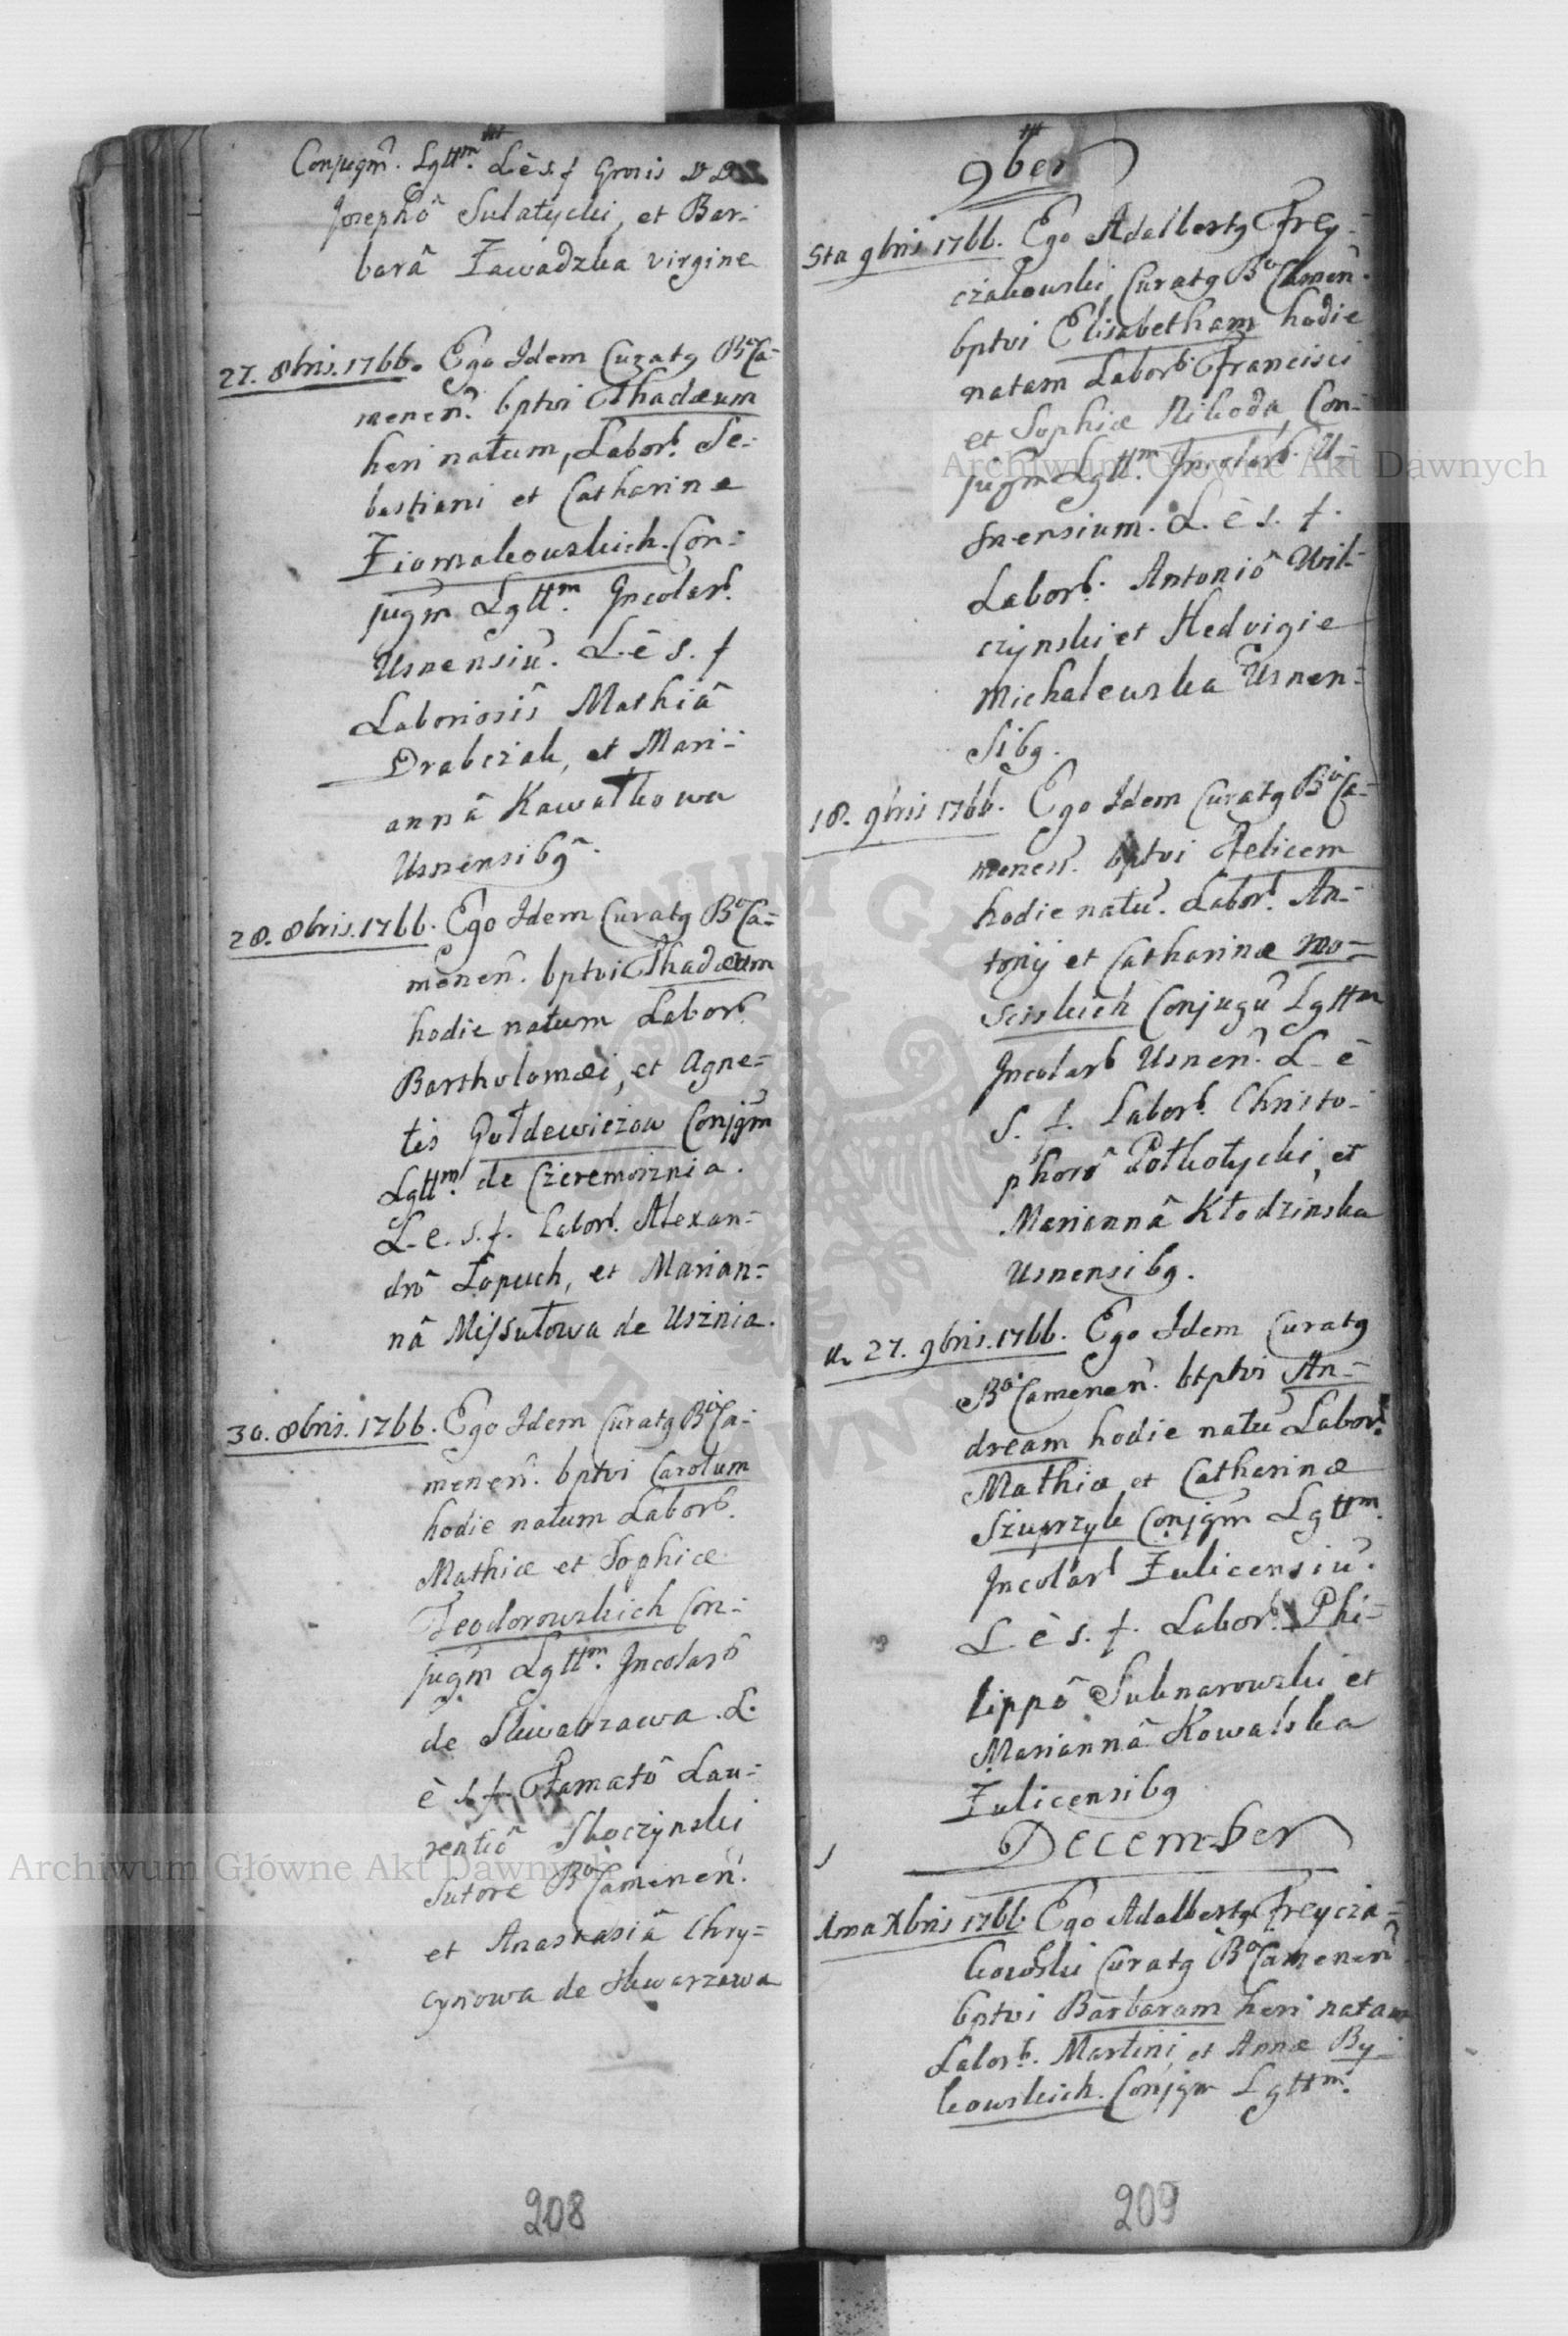 Conjugm̃. Lgttm. L è s. f Grosis D D
Josephô Sulatycki, et Bar-
barâ Zawadzka virgine
27. 8bris. 1766. Ego Idem Curatg Bo Ca-
menen̄. bptvi Thadæum
heri natum, Laborb. Se-
bastiani et Catharine
Ziomakowskich. Con-
jugm Lgttm. Incolarb.
Usnensiū. L. è s. f
Laboriosis Mathiâ
Drabcziak, et Mari-
annâ Kawałkowa
Usnensibg.
28. 8bris. 1766. Ego Idem Curatg Bo Ca-
menen̄. bptvi Thadæum
hodie natum Laborb
Bartholomæi, et Agne-
tis Gołdewiczow Conjgm̄
Lgttm. de Czieremoiznia.
L. e. s. f. Laborb. Alexan-
drô Łopuch, et Marian-
nâ Missułowa de Usznia.
30. 8bris. 1766. Ego Idem Curatg Bo Ca-
menen̄. bptvi Carolum
hodie natum Laborb.
Mathiæ et Sophiæ
Teodorowskich Con-
jugm Lgttm. Incolarb
de Skwarzawa. L.
è s. f. Famatô Lau-
rentiô Skoczynski
Sutore Bo Camenen̄.
et Anastasiâ Chry-
cynowa de Skwarzawa
208
9ber
5ta 9bris 1766. Ego Adalbertg Frey-
czakowski, Curatg Bo Camen̄.
bptvi Elisabetham hodie
natam Laborb. Francisci
et Sophiæ Rikoda, Con-
jugm Lgttm. Incolarb. U-
snensium. L. è s. f.
Laborb. Antoniô Wil-
czynski et Hedvigie
Michalewska Usnen-
sibg.
18. 9bris 1766. Ego Idem Curatg Bo Ca-
menen̄. bptvi Felicem
hodie natū. Laborb. An-
tonij et Catharinæ Mo-
scisskich Conjugū Lgttm
Incolarb Usnen̄. L. è
s. f. Laborb. Christo-
phorô Połkotycki, et
Mariannâ Kłodzinska
Usnensibg.
27. 9bris. 1766. Ego Idem Curatg
Bo Camenen̄. btptvi An-
dream hodie natū Laborb.
Mathiæ et Catherinæ
Szwrzyk Conjgm̄ Lgttm.
Incolarb Zulicensiū.
L. è s. f. Laborb. Phi-
lippô Suknarowski et
Mariannâ Kowalska
Zulicensibg
December
1ma Xbris 1766. Ego Adalbertg Freycza-
kowski Curatg Bo Camenen̄
bptvi Barbaram heri natam
Laborb. Martini et Annæ By-
kowskich. Conjgm Lgttm.
209
Archiwum Główne Akt Dawnych
Archiwum Główne Akt Dawnych